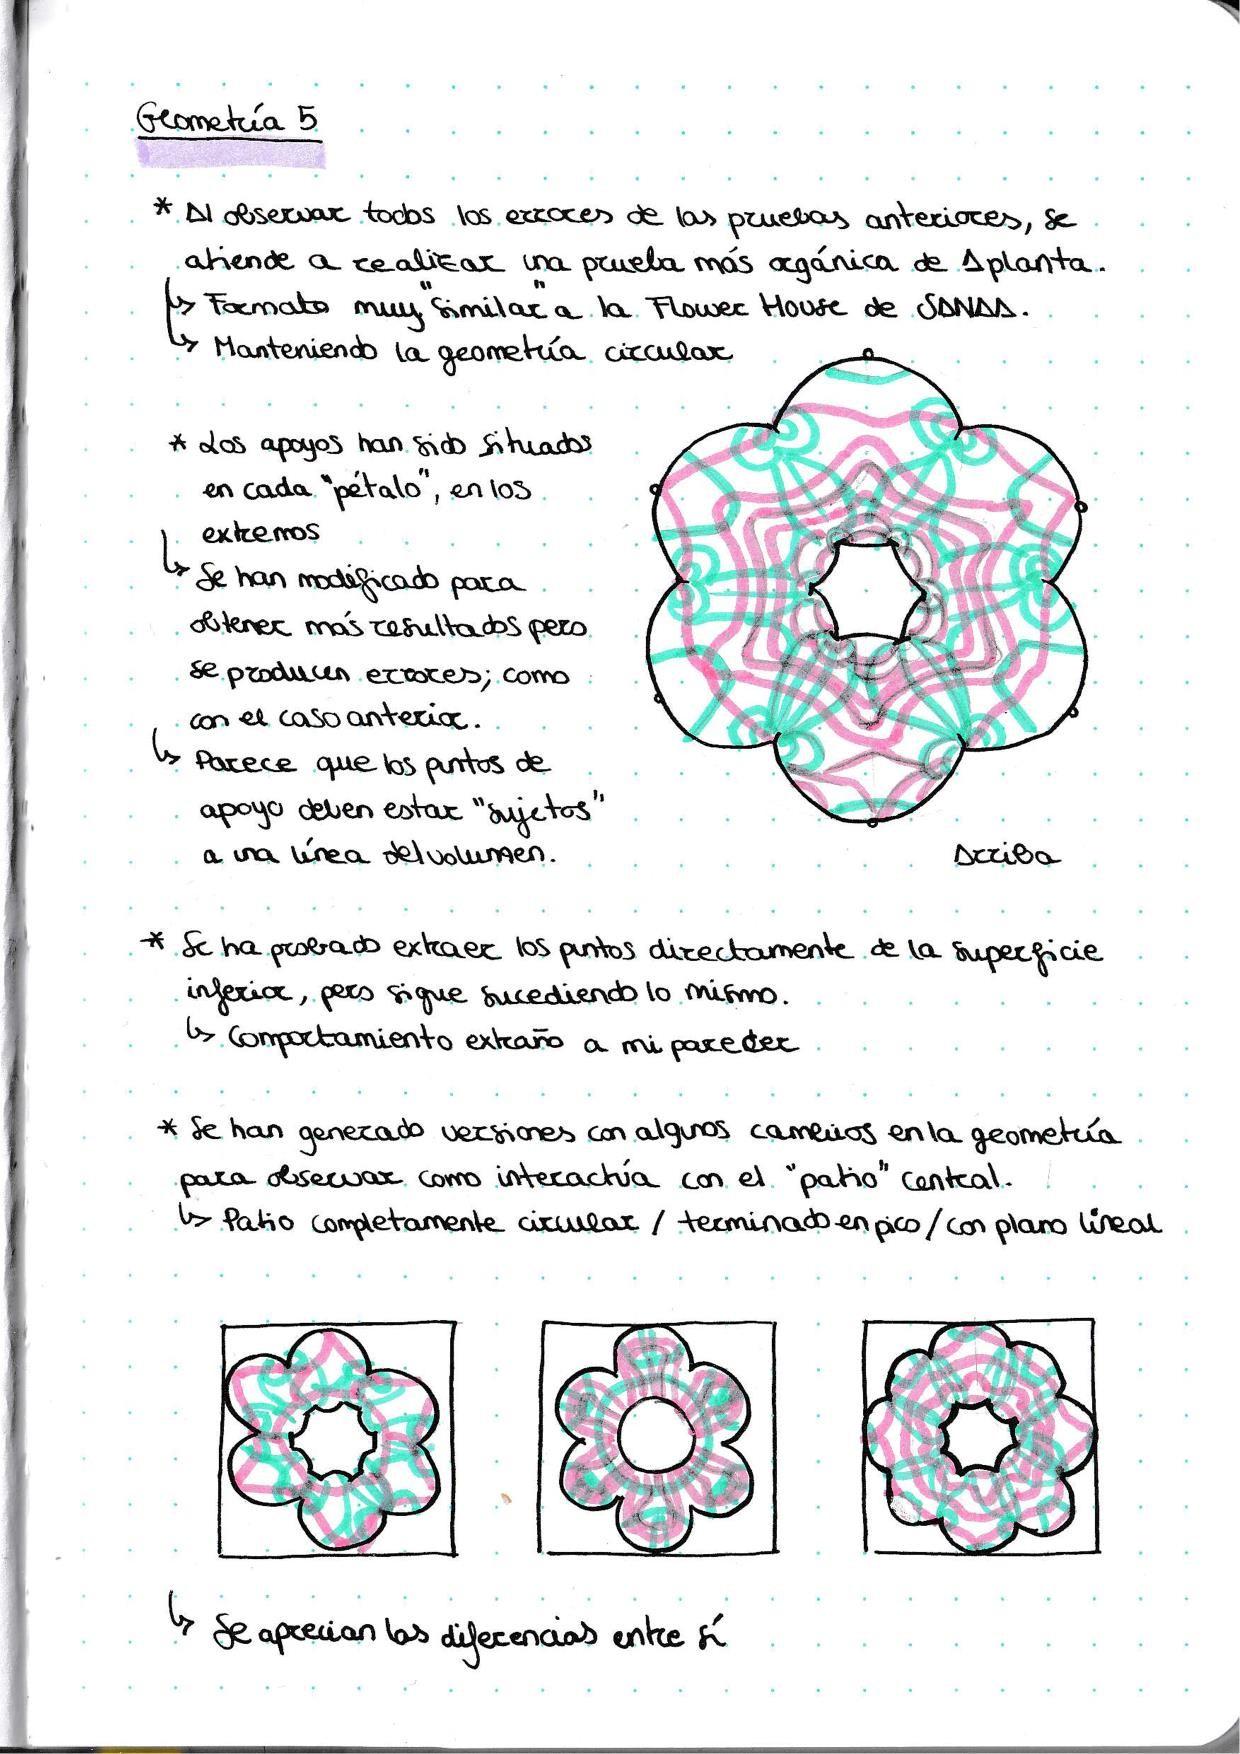 Geometría 5
* Al observar todos los errores de las pruebas anteriores, se
atiende a realizar una prueba más orgánica de 1 planta.
↳ Formato muy "similar" a la Flower House de SANAA.
↳ Manteniendo la geometría circular
* Los apoyos han sido situados
en cada "pétalo", en los
extremos
↳ Se han modificado para
obtener más resultados pero
se producen errores; como
con el caso anterior.
↳ Parece que los puntos de
apoyo deben estar "sujetos"
a una línea del volumen.
Arriba
* Se ha probado extraer los puntos directamente de la superficie
inferior, pero sigue sucediendo lo mismo.
↳ Comportamiento extraño a mi parecer
* Se han generado versiones con algunos cambios en la geometría
para observar como interactuía con el "patio" central.
↳ Patio completamente circular / terminado en pico / con plano lineal
↳ Se aprecian las diferencias entre sí